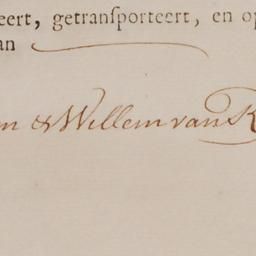 eert, getranſporteert, en op
an
n & Willem van R